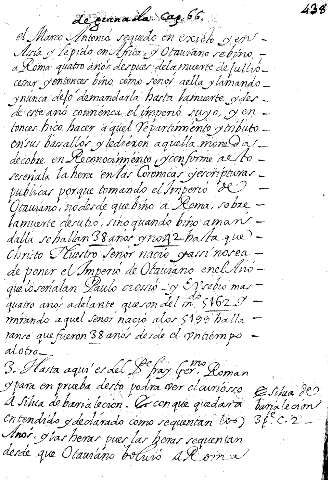 de granada. Cap. 66.
438
el Marco Antonio se quedo en exiclo y en
Asia y lepido en Africa, y Otauiano se bino
a Roma quatro años despues de la muerte de Jullio
cesar, y entonces bino como señor a ella y lamando
y nunca dejó de mandarla hasta la muerte, y des
de este año comiença el imperio suyo, y en
tonces hiço hacer aquel Repartimento y tributo
en sus basallos y le dieron aquella moneda
de cobre en Reconocimento y conforme a esto
se señala la hora en las Coronicas y escripturas
publicas porque tomando el Imperio de
Otauiano, no desde que bino a Roma, sobre
la muerte de su tio, sino quando bino a man
dalla se hallan 38 años y no 42 hasta que
Christo Nuestro Señor nació y assi no se a
de poner el Imperio de Otauiano en el Año
que señalan Paulo orosio y Eusebio mas
quatro años adelante que son del m.do 5162 y
mirando aquel Señor nació a los 5199 halla
ranse que fueron 38 años desde el un tiempo
al otro
3. Hasta aqui es del Pe. fray Germo. Roman
y para en prueba desto podra ver el curiosso
A Silua de baria lecion. Con que quedara
entendido y declarado como se quentan los
Años y las heras pues las heras se quentan
desde que Otauiano boluió a Roma
Silua de
baria lecion
3 p. c. 2